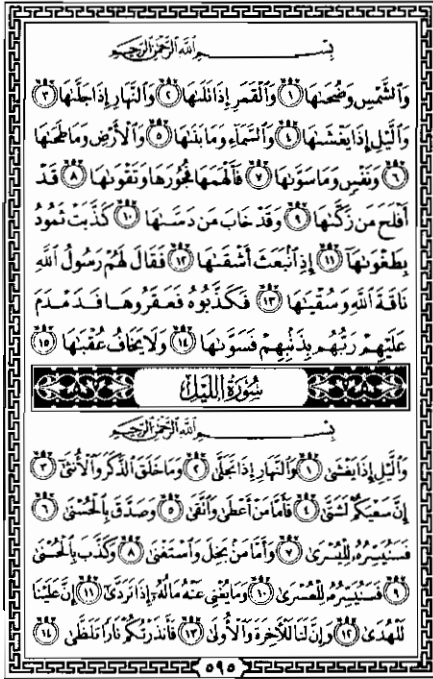 بِسْمِ ٱللَّهِ ٱلرَّحْمَٰنِ ٱلرَّحِيمِ
وَٱلشَّمْسِ وَضُحَىٰهَا ١ وَٱلْقَمَرِ إِذَا تَلَىٰهَا ٢ وَٱلنَّهَارِ إِذَا جَلَّىٰهَا ٣
وَٱلَّيْلِ إِذَا يَغْشَىٰهَا ٤ وَٱلسَّمَآءِ وَمَا بَنَىٰهَا ٥ وَٱلْأَرْضِ وَمَا طَحَىٰهَا
٦ وَنَفْسٍ وَمَا سَوَّىٰهَا ٧ فَأَلْهَمَهَا فُجُورَهَا وَتَقْوَىٰهَا ٨ قَدْ
أَفْلَحَ مَن زَكَّىٰهَا ٩ وَقَدْ خَابَ مَن دَسَّىٰهَا ١٠ كَذَّبَتْ ثَمُودُ
بِطَغْوَىٰهَآ ١١ إِذِ ٱنۢبَعَثَ أَشْقَىٰهَا ١٢ فَقَالَ لَهُمْ رَسُولُ ٱللَّهِ
نَاقَةَ ٱللَّهِ وَسُقْيَٰهَا ١٣ فَكَذَّبُوهُ فَعَقَرُوهَا فَدَمْدَمَ
عَلَيْهِمْ رَبُّهُم بِذَنۢبِهِمْ فَسَوَّىٰهَا ١٤ وَلَا يَخَافُ عُقْبَٰهَا ١٥
سُورَةُ اللَّيْلِ
بِسْمِ ٱللَّهِ ٱلرَّحْمَٰنِ ٱلرَّحِيمِ
وَٱلَّيْلِ إِذَا يَغْشَىٰ ١ وَٱلنَّهَارِ إِذَا تَجَلَّىٰ ٢ وَمَا خَلَقَ ٱلذَّكَرَ وَٱلْأُنثَىٰٓ ٣
إِنَّ سَعْيَكُمْ لَشَتَّىٰ ٤ فَأَمَّا مَنْ أَعْطَىٰ وَٱتَّقَىٰ ٥ وَصَدَّقَ بِٱلْحُسْنَىٰ ٦
فَسَنُيَسِّرُهُۥ لِلْيُسْرَىٰ ٧ وَأَمَّا مَنۢ بَخِلَ وَٱسْتَغْنَىٰ ٨ وَكَذَّبَ بِٱلْحُسْنَىٰ
٩ فَسَنُيَسِّرُهُۥ لِلْعُسْرَىٰ ١٠ وَمَا يُغْنِى عَنْهُ مَالُهُۥٓ إِذَا تَرَدَّىٰٓ ١١ إِنَّ عَلَيْنَا
لَلْهُدَىٰ ١٢ وَإِنَّ لَنَا لَلْـَٔاخِرَةَ وَٱلْأُولَىٰ ١٣ فَأَنذَرْتُكُمْ نَارًا تَلَظَّىٰ ١٤
٥٩٥